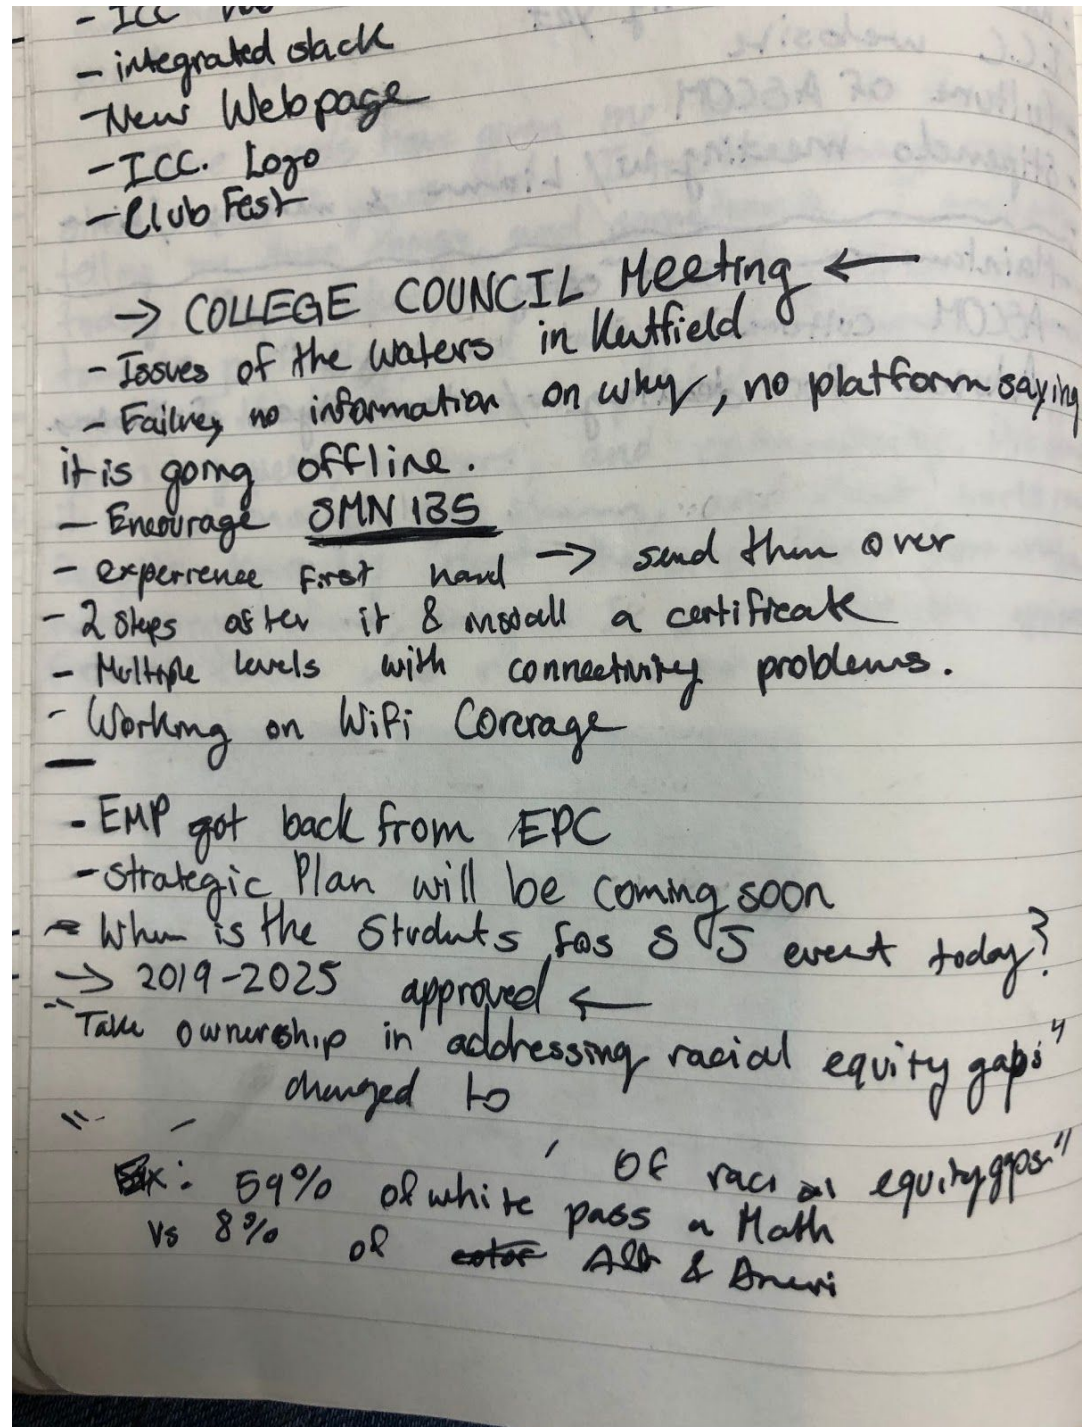 - ICC
- integrated slack
- New Webpage
- ICC. Logo
- Club Fest
→ COLLEGE COUNCIL Meeting ←
- Issues of the waters in Kentfield
- Failure, no information on why, no platform saying
it is going offline.
- Encourage SMN 135
- experience first hand → send them over
- 2 steps after it & install a certificate
- Multiple levels with connectivity problems.
- Working on WiFi Coverage
-
- EMP got back from EPC
- Strategic Plan will be coming soon
- When is the Students fos S J event today?
→ 2019-2025 approved ←
"Take ownership in addressing racial equity gaps"
changed to
" - ' of racial equity gaps"
Ex: 59% of white pass a Math
vs 8% of color & Ameri